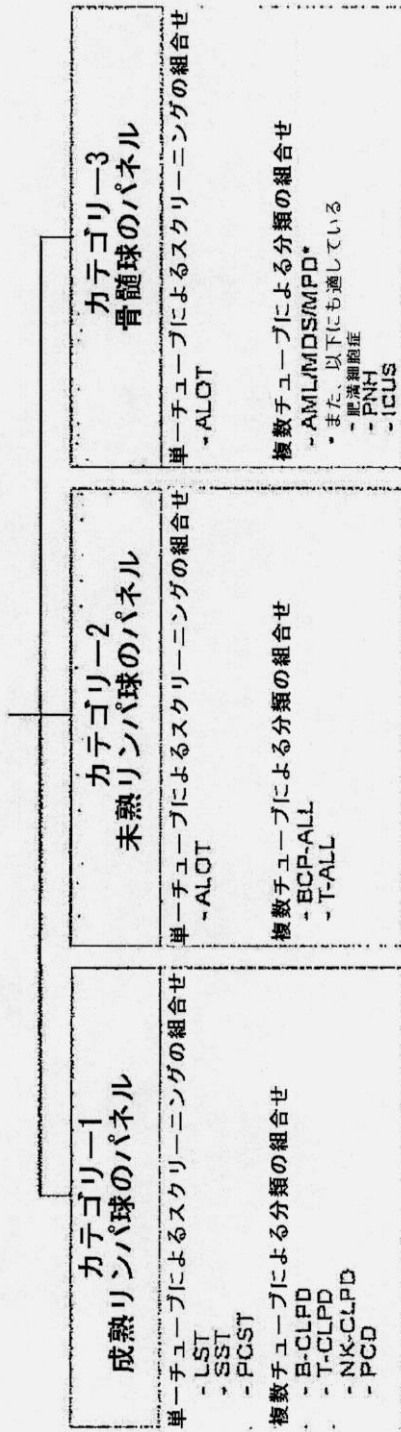 カテゴリー1
成熟リンパ球のパネル
単一チューブによるスクリーニングの組合せ
- LST
- SST
- PCST
複数チューブによる分類の組合せ
- B-CLPD
- T-CLPD
- NK-CLPD
- PCD
カテゴリー2
未熟リンパ球のパネル
単一チューブによるスクリーニングの組合せ
- ALOT
複数チューブによる分類の組合せ
- BCP-ALL
- T-ALL
カテゴリー3
骨髄球のパネル
単一チューブによるスクリーニングの組合せ
- ALOT
複数チューブによる分類の組合せ
- AML/MDS/MPD*
* また、以下にも適している
- 肥満細胞症
- PNH
- ICUS